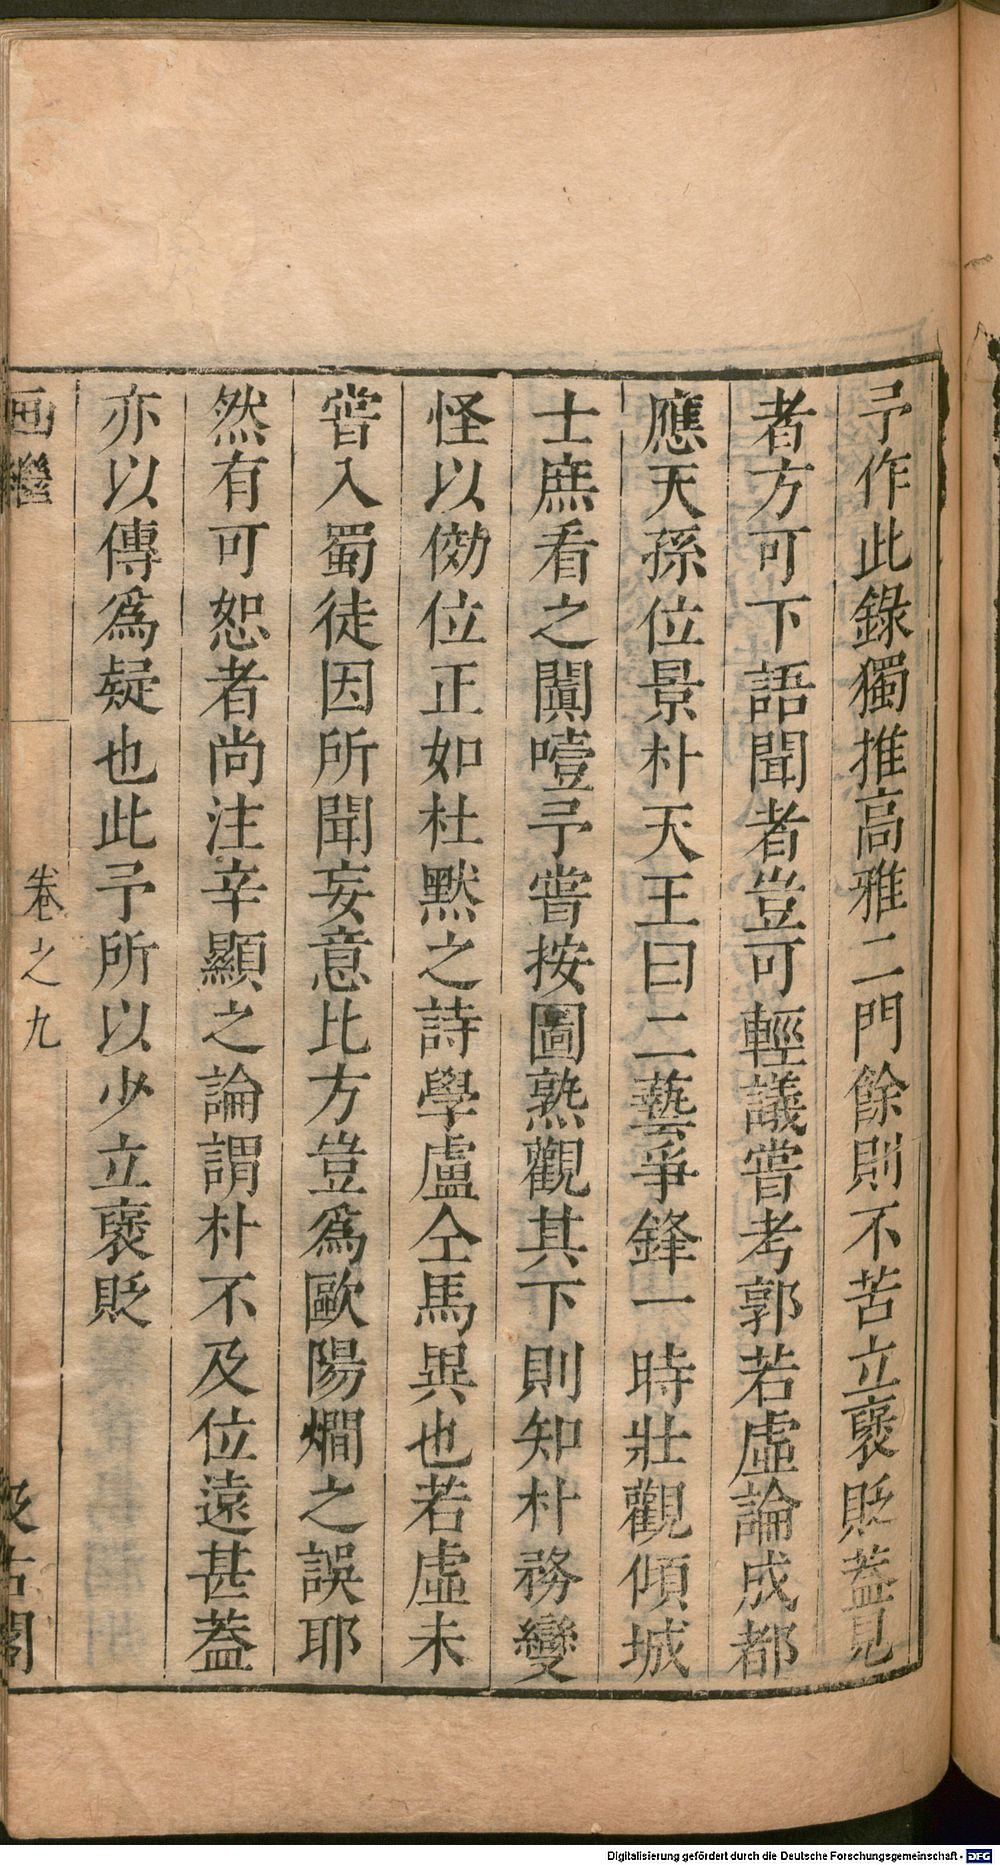 予作此錄獨推高雅二門餘則不苦立襃貶葢見
者方可下語聞者豈可輕議嘗考郭若虛論成都
應天孫位景朴天王曰二藝爭鋒一時壯觀傾城
士庶看之闐噎予嘗按圖熟觀其下則知朴務變
怪以傚位正如杜默之詩學盧仝馬異也若虛未
嘗入蜀徒因所聞妄意比方豈爲歐陽燗之誤耶
然有可恕者尚注辛顯之論謂朴不及位遠甚葢
亦以傳爲疑也此予所以少立襃貶
画繼
卷之九
汲古閣
Digitalisierung gefördert durch die Deutsche Forschungsgemeinschaft - DFG